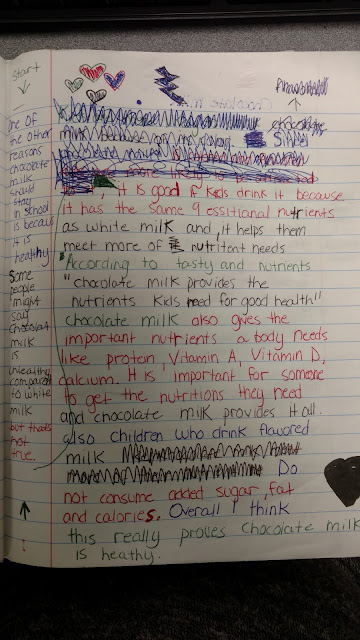 start
one of
the other
reasons
chocolate
milk
should
stay
in school
is becaus
it is
healthy
Some
people
might
say
chocolat
milk
is
unhealthy
compared
to white
milk
but thats
not
true.
, It is good if kids drink it because
it has the same 9 essitional nutrients
as white milk and, it helps them
meet more of nutritant needs
"According to tasty and nutrients
"chocolate milk provides the
nutrients kids need for good health"
chocolate milk also gives the
important nutrients a body needs
like protein, Vitamin A, Vitamin D,
calcium. It is important for someone
to get the nutritions they need
and chocolate milk provides it all.
also children who drink flavored
milk
Do
not consume added sugar, fat
and calories. Overall I think
this really proves Chocolate milk
is heathy.